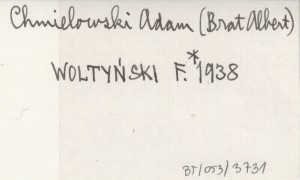 Chmielowski Adam (Brat Albert)
WOLTYŃSKI F. *1938
BT/053/3731